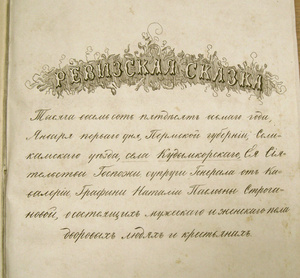 РЕВИЗСКАЯ СКАЗКА
Тысяча восемь сотъ пятьдесятъ осьмаго года,
Января перваго дня, Пермской губерніи, Соли-
камскаго уѣзда, села Кудымкорскаго, Ея Сія-
тельства Госпожи, супруги Генерала отъ Ка-
валеріи Графини Натальи Павловны Строга-
новой, о состоящихъ мужескаго и женскаго пола
дворовыхъ людяхъ и крестьянахъ.